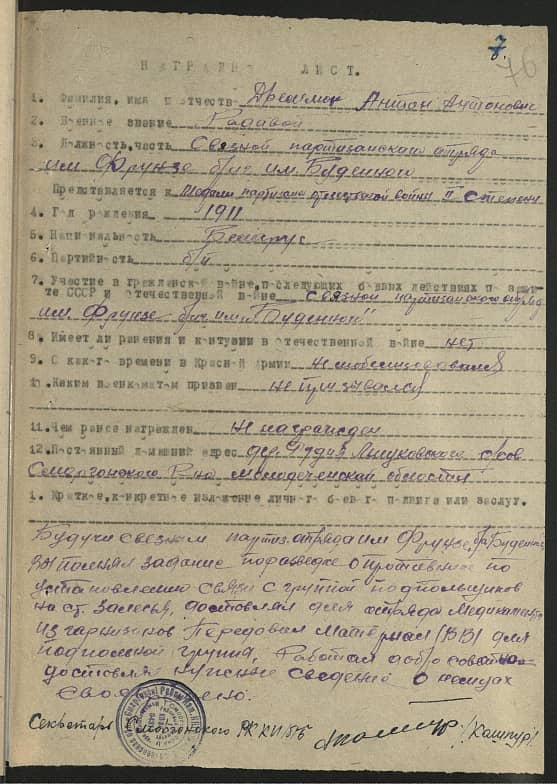 7
76
НАГРАДНОЙ ЛИСТ.
1. Фамилия, имя и отчество Антон Антонович
2. Военное звание Рядовой
3. Должность, часть Связной партизанского отряда
им Фрунзе б-ис им. Буденного
Представляется к Медали партизана отечественной войны II степени
4. Год рождения 1911
5. Национальность Белорус
6. Партийность б/п
7. Участие в гражданской войне, последующих боевых действиях по защи-
те СССР и отечественной войне связной партизанского отряда
им Фрунзе б-ис им. "Буденной"
8. Имеет ли ранения и контузии в отечественной войне нет
9. С какого времени в Красной Армии не мобилизовался
10. Каким военкоматом призван не призывался
11. Чем ранее награжден не награжден
12. Постоянный домашний адрес дер. с/сов
Сморгонского р-на Молодеченской области
1. Краткое, конкретное изложение личного боевого подвига или заслуг.
Будучи связным партиз. отряда им Фрунзе, бр. Буденного
выполнял задание по разведке о противнике по
установлению связи с группой подпольщиков
на ст. Залесья, доставлял для отряда медикаменты
из гарнизонов Передовал материал (ВВ) для
подпольной группы, Работал добросовестно
доставлял нужные сведений о полицах
Секретарь Сморгонского РК КП/б/Б /Кашпур/